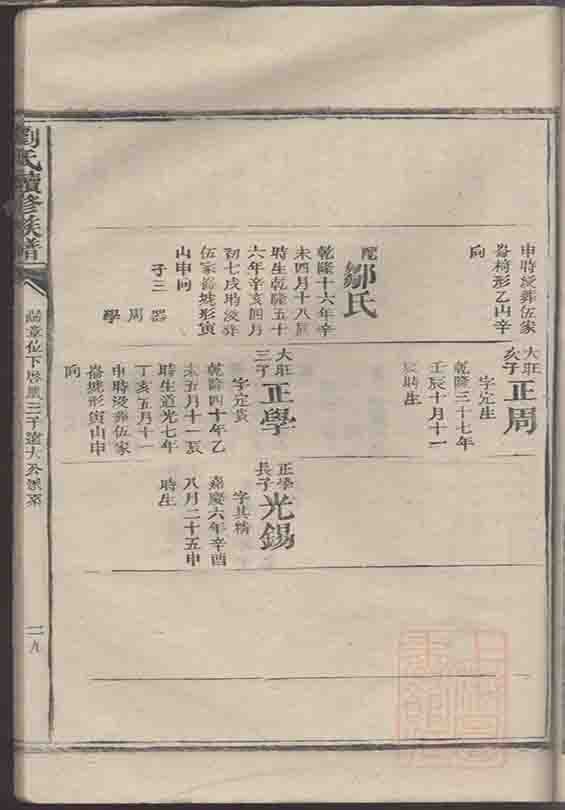 申時歿葬伍家
崙椅形乙山辛
向
配
鄒氏
乾隆十六年辛
未四月十八辰
時生乾隆五十
六年辛亥四月
初七戌時歿葬
伍家崙墟形寅
山申向
子三
器
周
學
大莊
次子
正周
字定生
乾隆三十七年
壬辰十月十一
時生
大莊
三子
正學
字定袁
乾隆四十年乙
未五月十一辰
時生道光七年
丁亥五月十一
申時歿葬伍家
崙墟形寅山申
向
正學
長子
光錫
字其精
嘉慶六年辛酉
八月二十五申
時生
劉氏續修族譜
二八